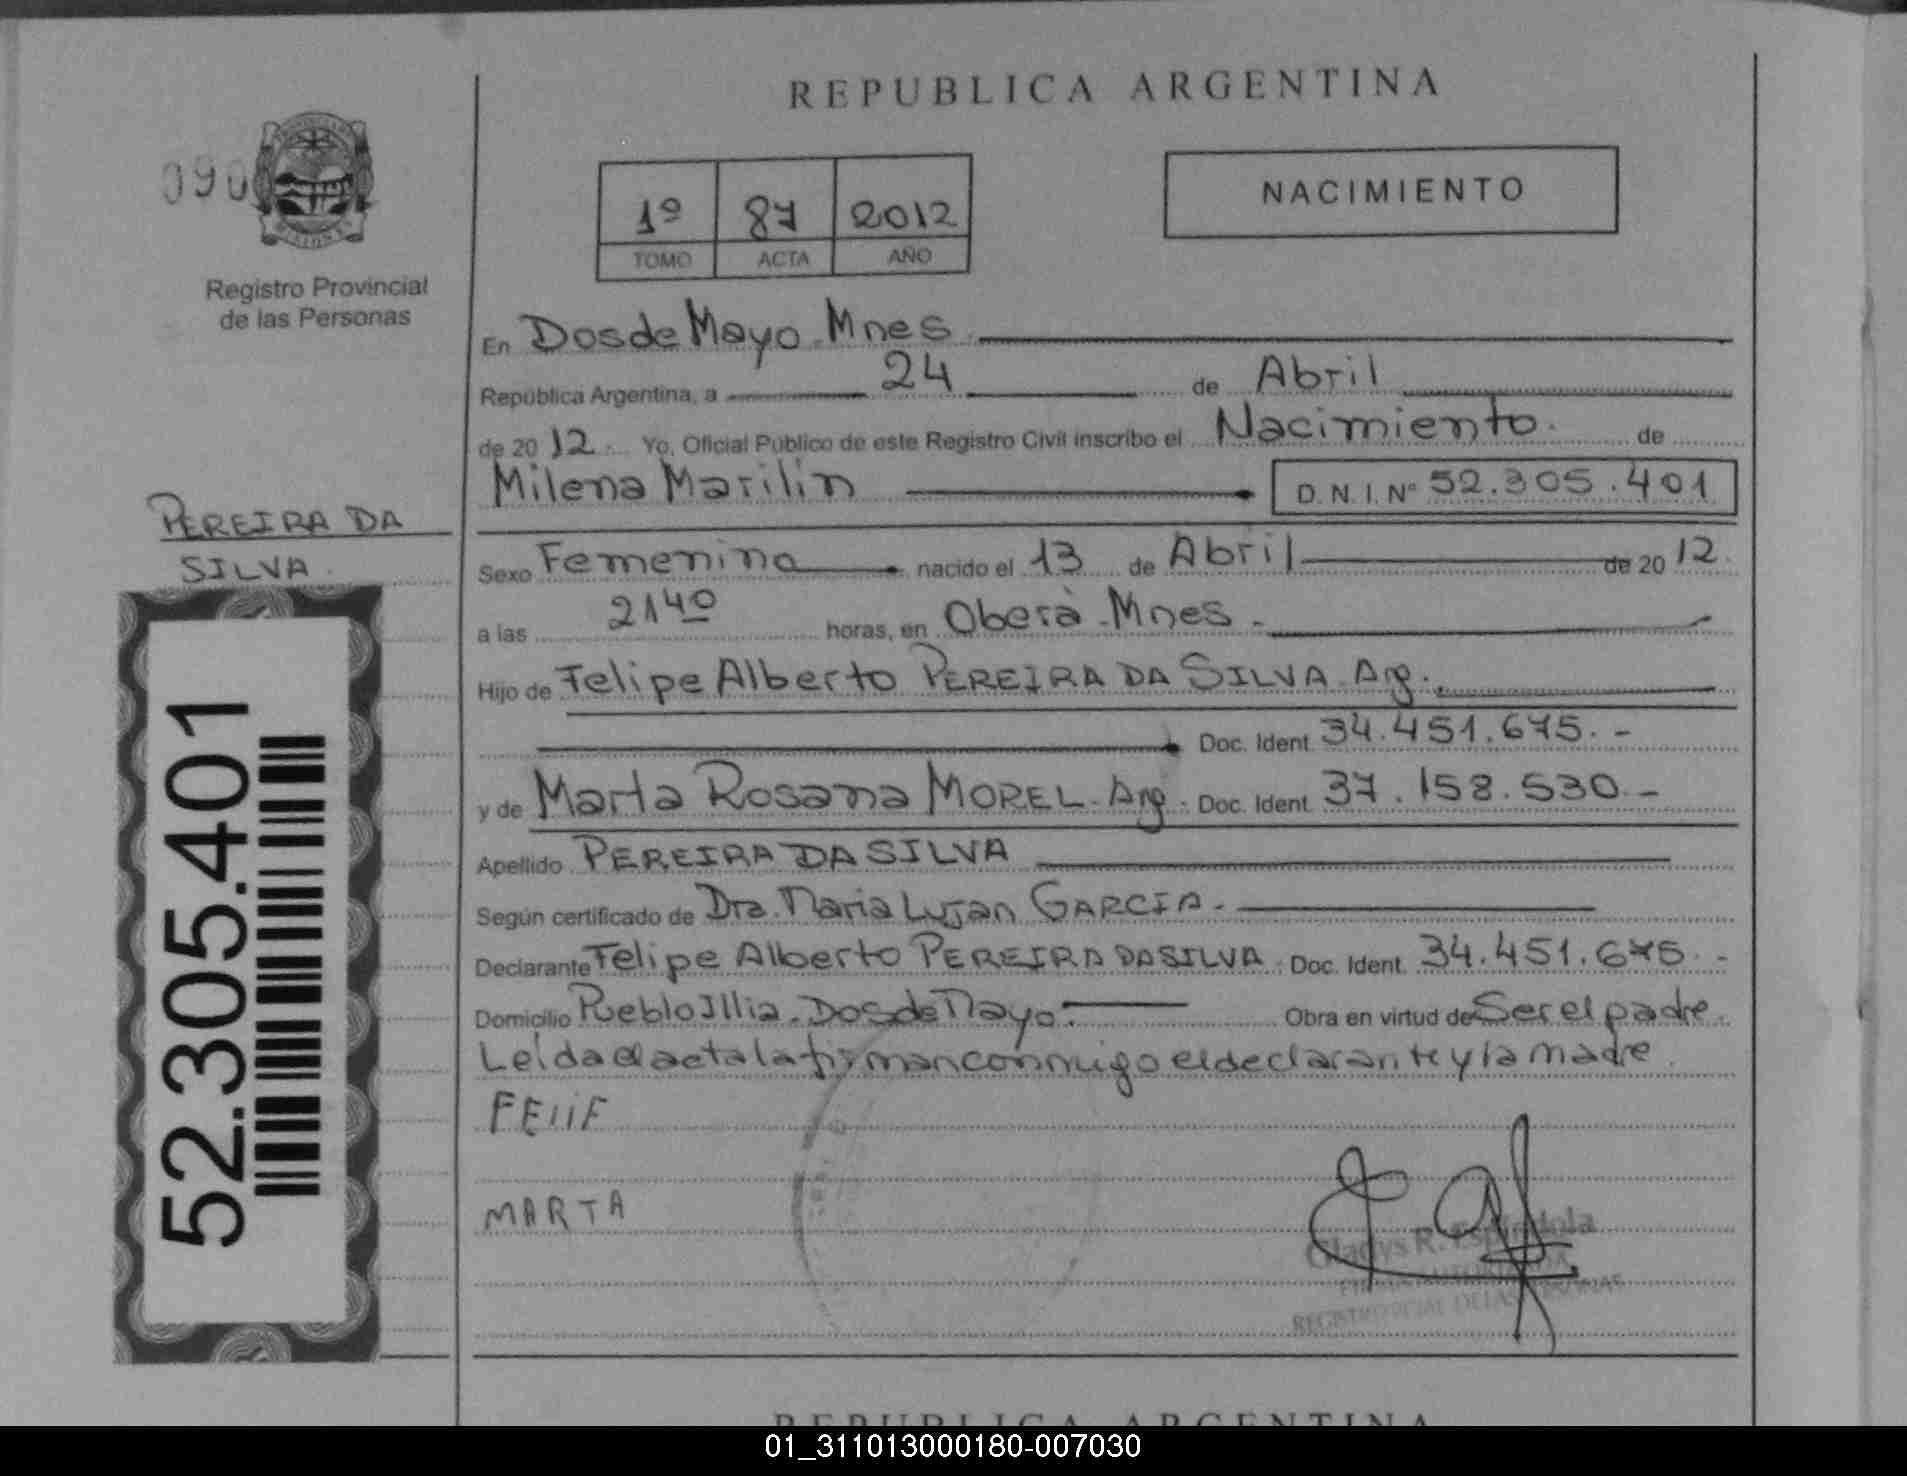 REPUBLICA ARGENTINA
090
Registro Provincial
de las Personas
1º 87 2012
TOMO ACTA AÑO
NACIMIENTO
En Dos de Mayo - Mnes
República Argentina, a 24 de Abril
de 2012 Yo, Oficial Público de este Registro Civil inscribo el Nacimiento de
Milena Marilin D.N.I. Nº 52.305.401
PEREIRA DA
SILVA
Sexo Femenino nacido el 13 de Abril de 2012
a las 2140 horas, en Oberà - Mnes -
Hijo de Felipe Alberto PEREIRA DA SILVA - Arg.
Doc. Ident. 34.451.675.-
y de Marta Rosana MOREL - Arg. Doc. Ident. 37.158.530.-
Apellido PEREIRA DA SILVA
Según certificado de Dra. Maria Lujan GARCIA -
Declarante Felipe Alberto PEREIRA DA SILVA Doc. Ident. 34.451.675.-
Domicilio Pueblo Illia - Dos de Mayo. Obra en virtud de Ser el padre.
Leída el acta la firman conmigo el declarante y la madre.
FEliF
MARTA
Gladys R. Espíndola
52.305.401
REPUBLICA ARGENTINA
01_311013000180-007030